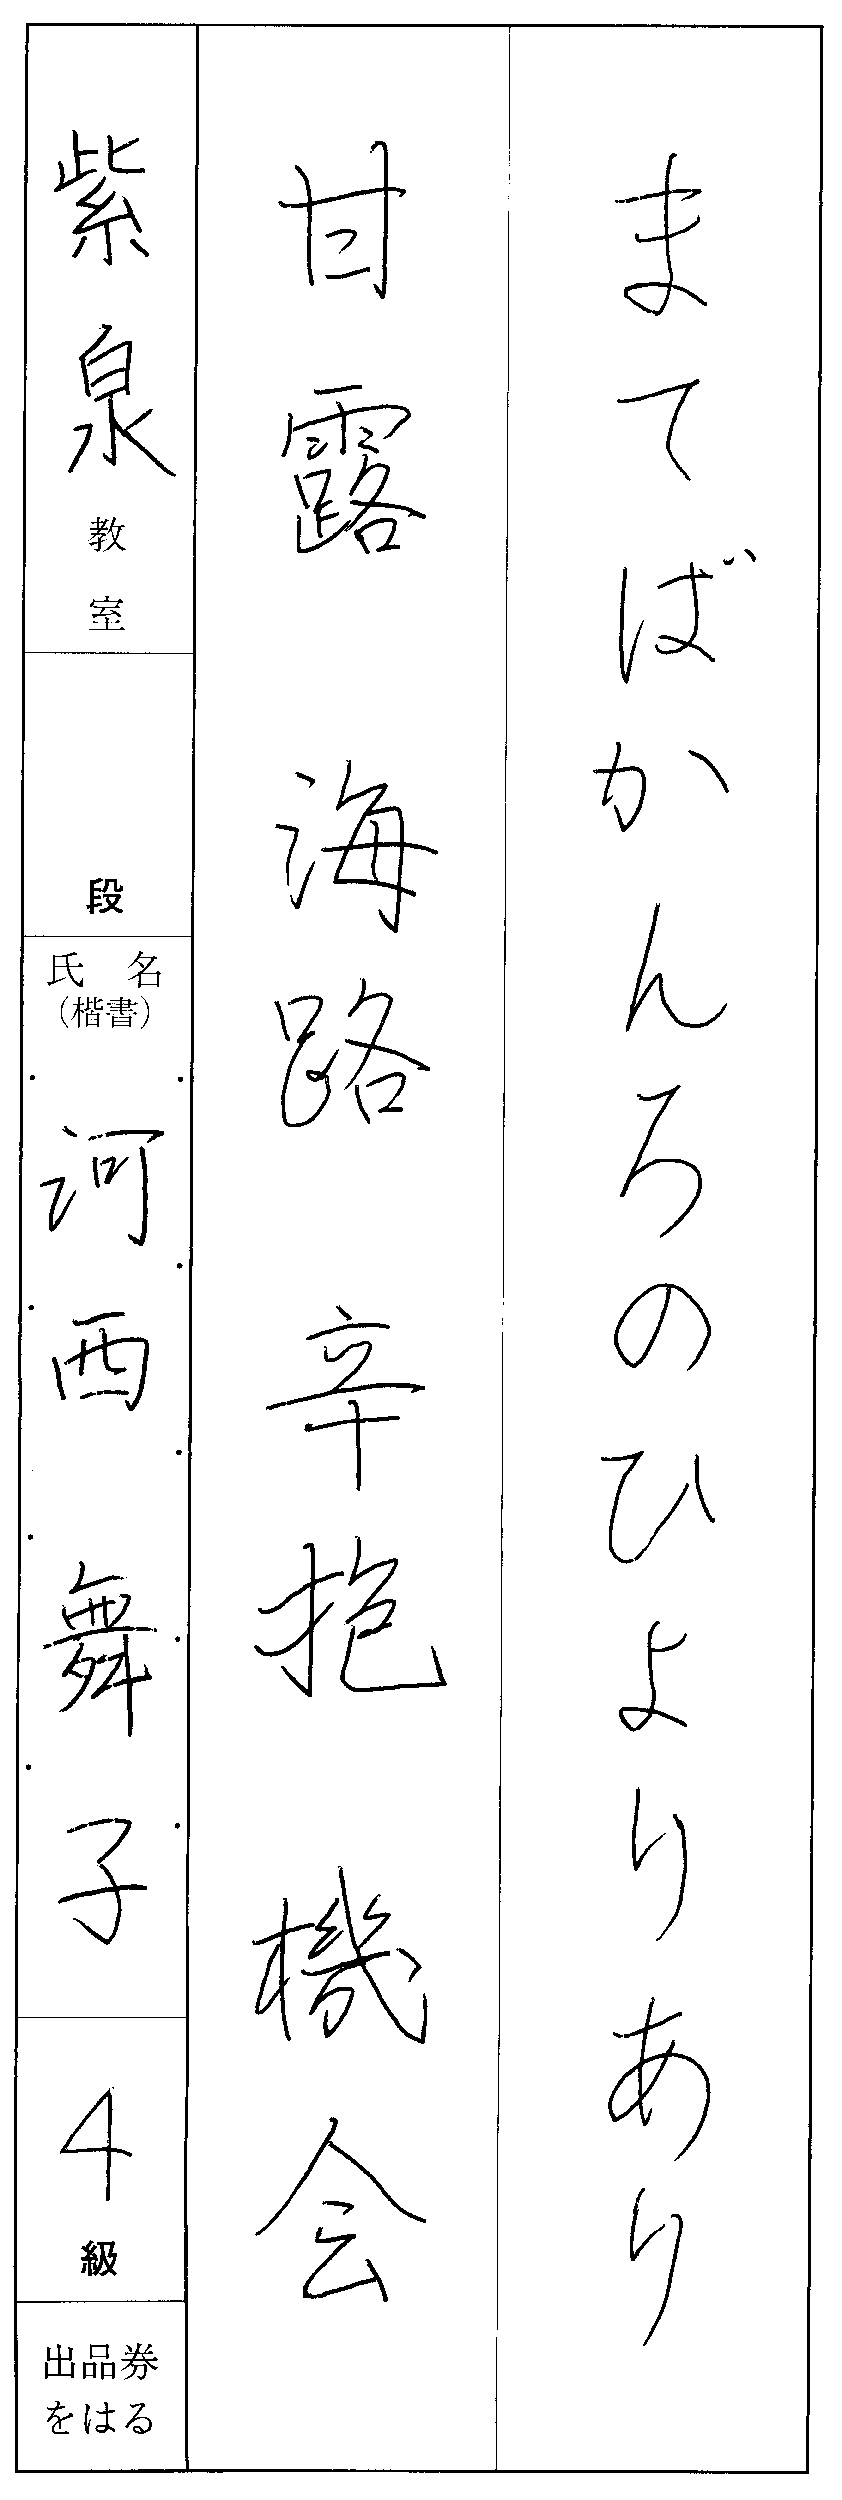 まてばかんろのひよりあり
甘露 海路 辛抱 機会
紫泉教室
段
氏名
(楷書)
河西 舞子
4級
出品券
をはる